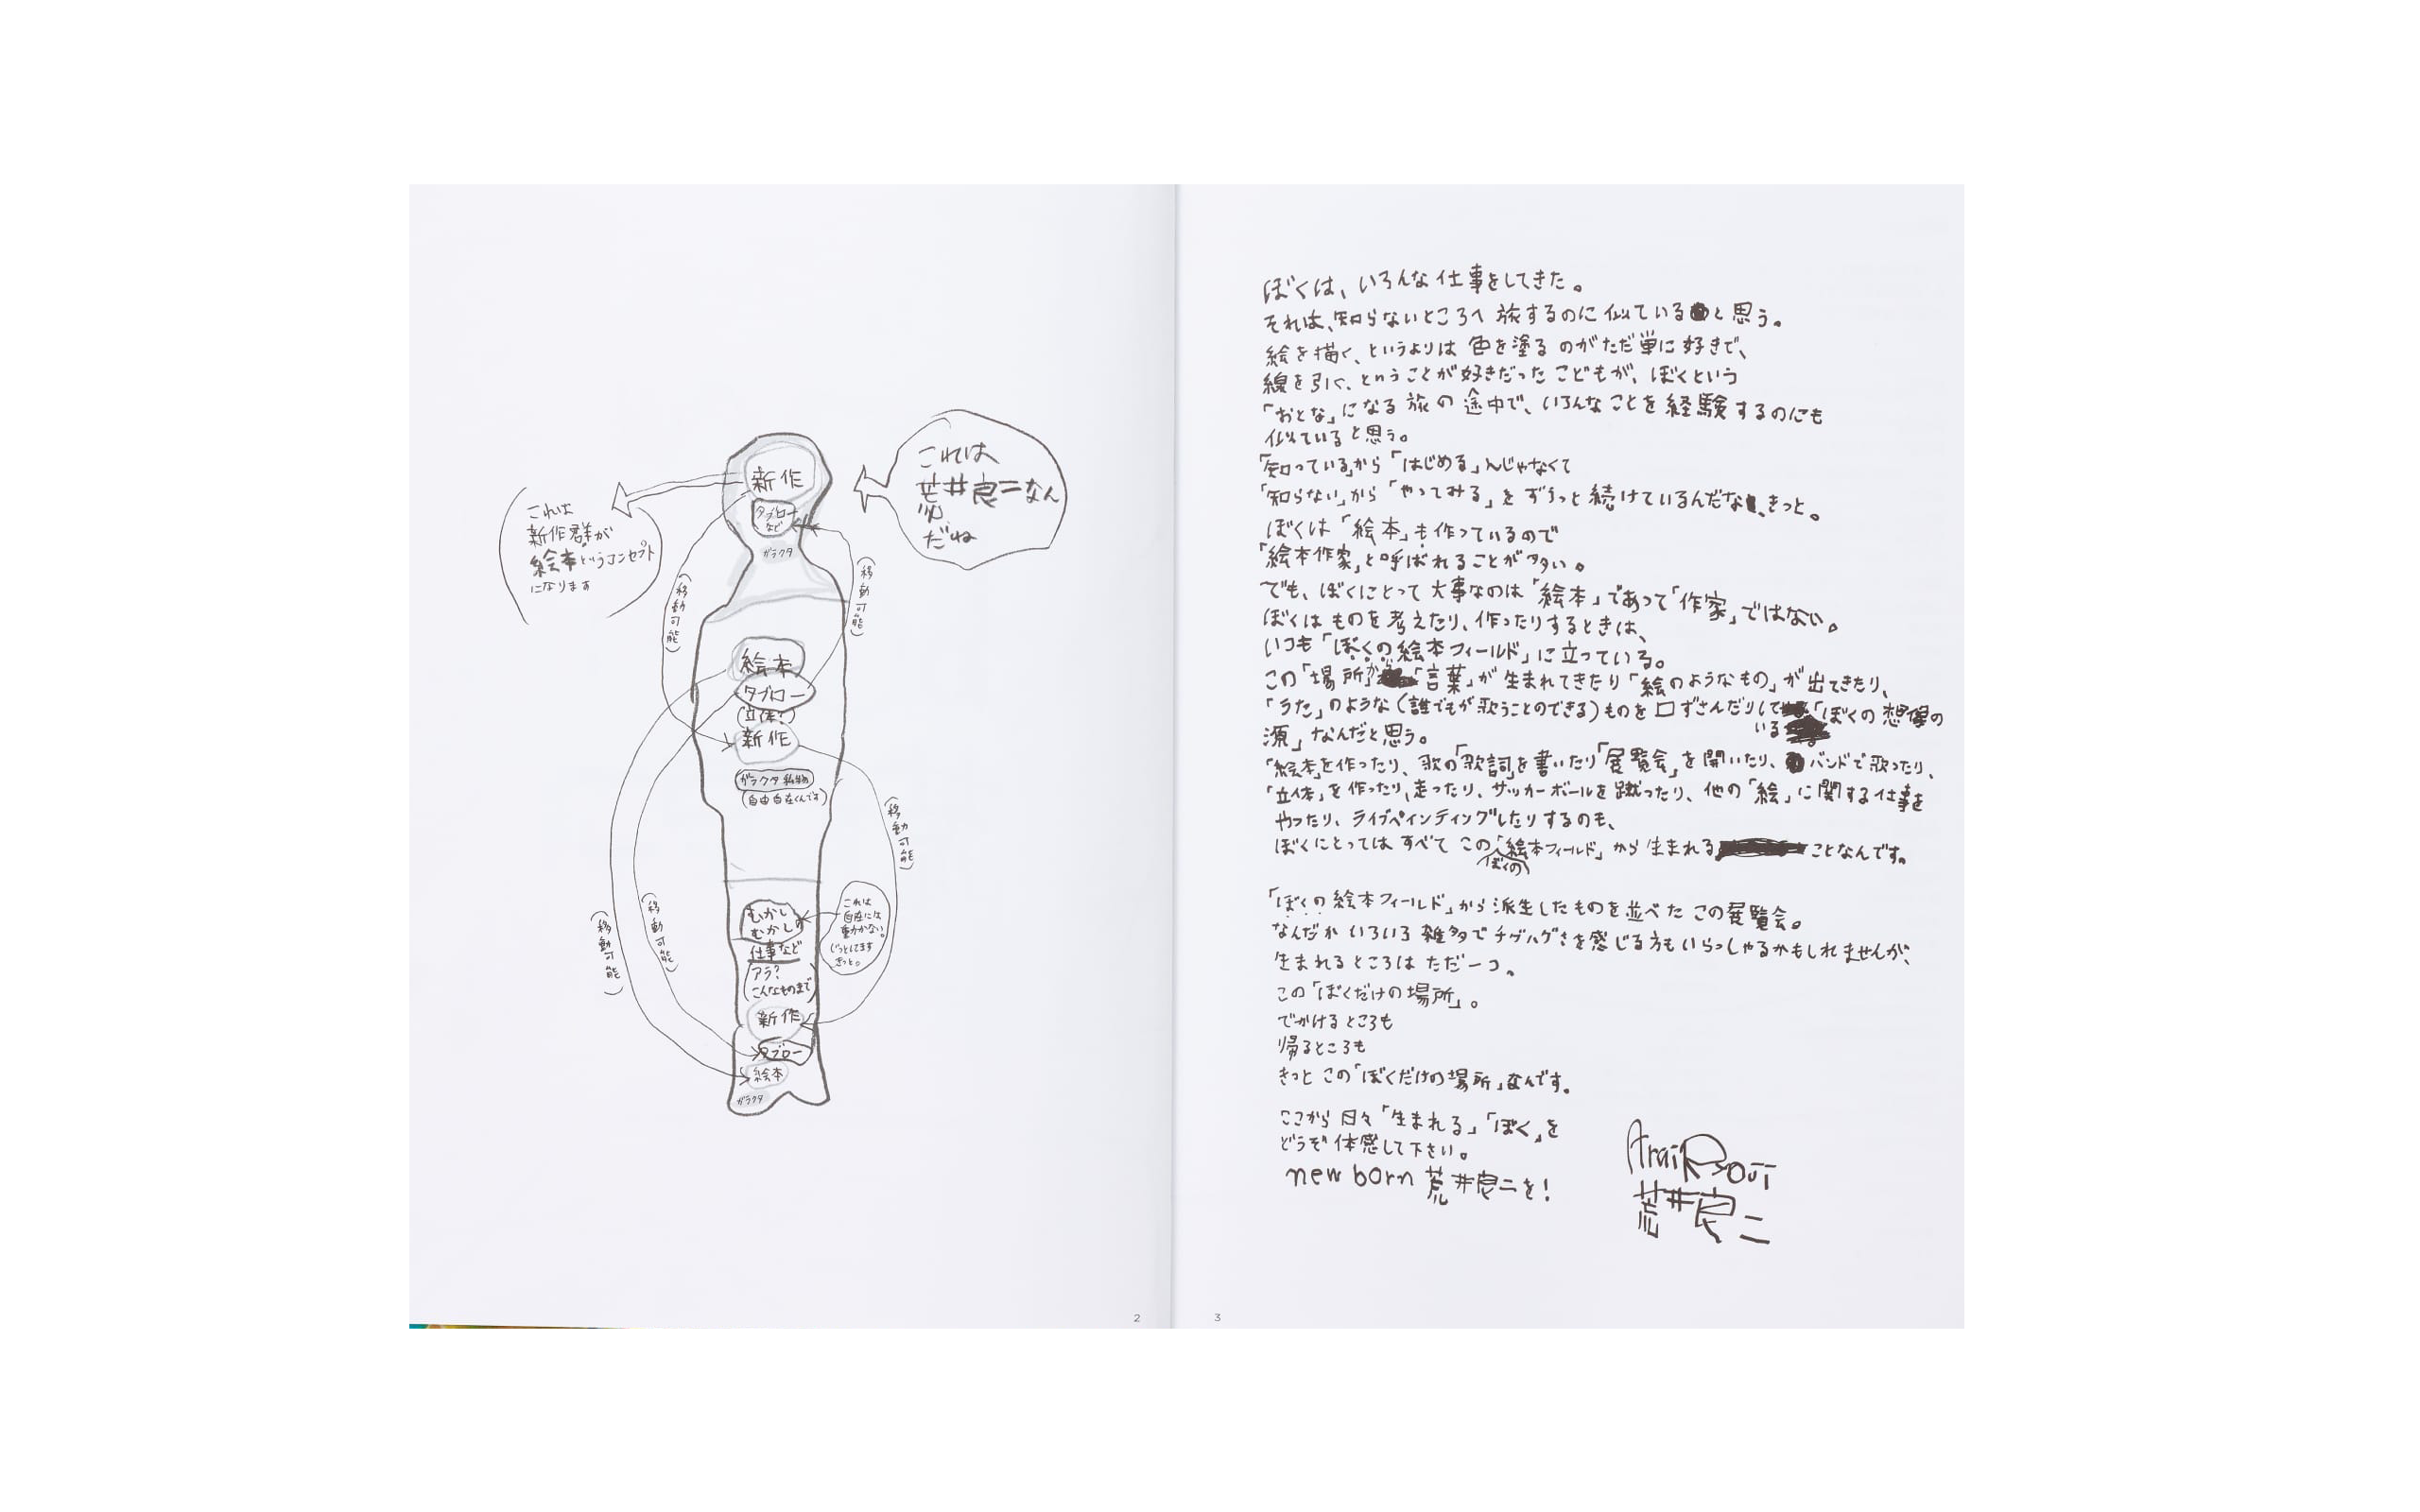 これは
新作群が
絵本というコンセプト
になります
これは
荒井良二なん
だね
新作
タブロー
など
ガラクタ
(移動可能)
(移動可能)
絵本
タブロー
(立体?)
新作
ガラクタ 私物
(自由自在くんです)
(移動可能)
(移動可能)
(移動可能)
むかし
むかし
仕事など
アラ?
こんなものまで
これは
自在には
動かない。
じっとしてます
きっと。
新作
タブロー
絵本
ガラクタ
2
ぼくは、いろんな仕事をしてきた。
それは、知らないところへ 旅するのに似ていると思う。
絵を描く、というよりは 色を塗る のがただ単に好きで、
線を引く、ということが好きだった こどもが、ぼくという
「おとな」になる旅の途中で、いろんなことを経験するのにも
似ていると思う。
「知っている」から「はじめる」んじゃなくて
「知らない」から「やってみる」をずうっと続けているんだな、きっと。
ぼくは「絵本」も作っているので
「絵本作家」と呼ばれることが多い。
でも、ぼくにとって大事なのは「絵本」であって「作家」ではない。
ぼくはものを考えたり、作ったりするときは、
いつも「ぼくの絵本フィールド」に立っている。
この「場所」から「言葉」が生まれてきたり「絵のようなもの」が出てきたり、
「うた」のような(誰でもが歌うことのできる)ものを口ずさんだりしている「ぼくの想像の
源」なんだと思う。
「絵本」を作ったり、歌の「歌詞」を書いたり「展覧会」を開いたり、バンドで歌ったり、
「立体」を作ったり、走ったり、サッカーボールを蹴ったり、他の「絵」に関する仕事を
やったり、ライブペインティングしたりするのも、
ぼくにとってはすべて この「ぼくの絵本フィールド」から生まれることなんです。
「ぼくの絵本フィールド」から派生したものを並べた この展覧会。
なんだか いろいろ雑多でチグハグさを感じる方もいらっしゃるかもしれませんが、
生まれるところは ただ一つ。
この「ぼくだけの場所」。
でかけるところも
帰るところも
きっと この「ぼくだけの場所」なんです。
ここから日々「生まれる」「ぼく」を
どうぞ体感して下さい。
new born 荒井良二を!
Arai Ryouji
荒井良二
3